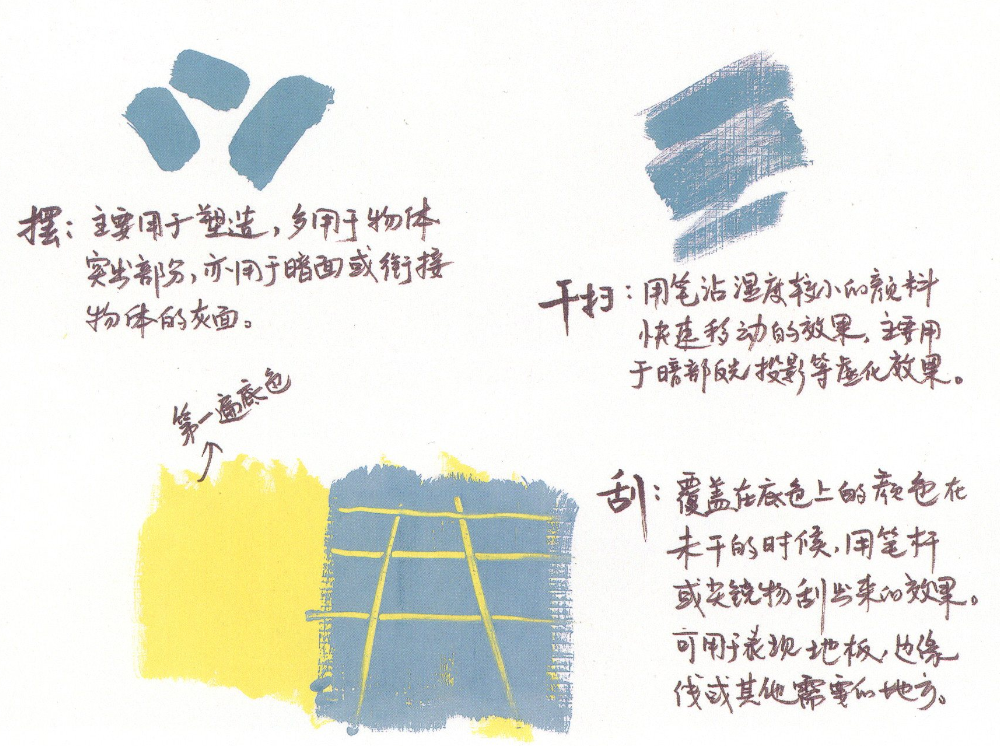 摆：主要用于塑造，多用于物体
突出部分，亦用于暗面或衔接
物体的灰面。
干扫：用笔沾湿度较小的颜料
快速移动的效果，主要用
于暗部反光投影等虚化效果。
第一遍底色
刮：覆盖在底色上的颜色在
未干的时候，用笔杆
或尖锐物刮出来的效果。
可用于表现地板，边缘
线或其他需要的地方。